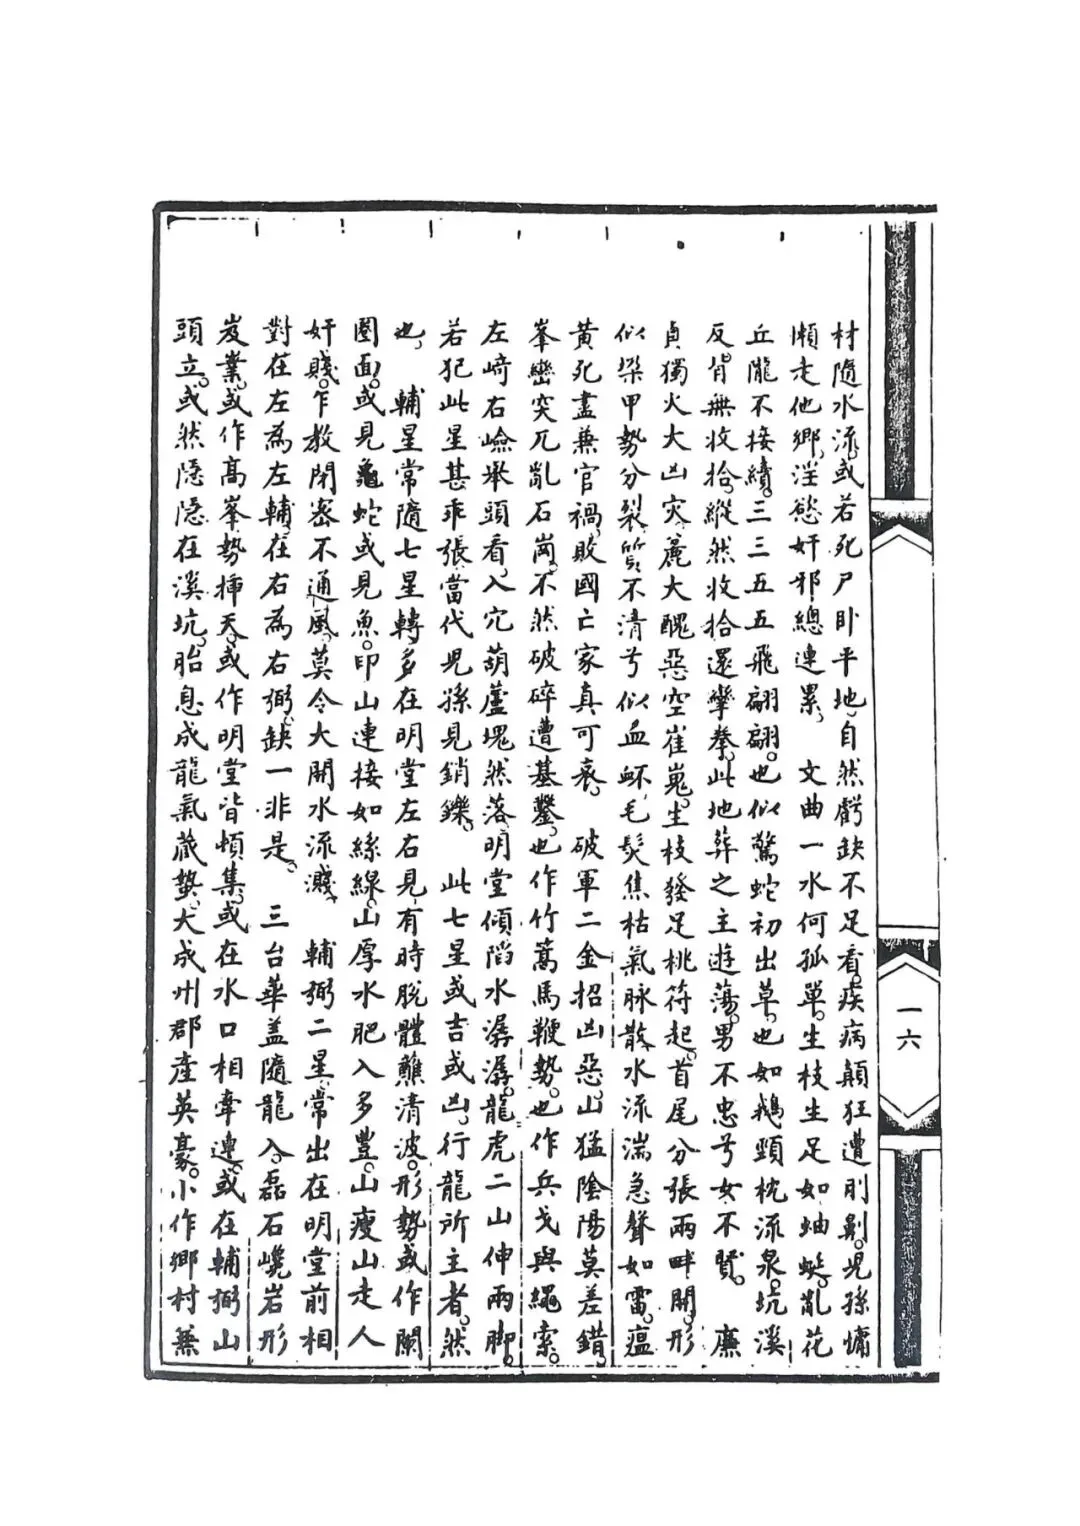 材隨水流。或若死尸卧平地。自然虧缺不足看。疾病顛狂遭刖劓。児孫慵
懶走他鄉。淫慾奸邪總連累。　文曲一水何孤單。生枝生足如蚰蜒。亂花
丘隴不接續。三三五五飛翩翩。也似驚蛇初出草。也如鵝頸枕流泉。坑溪
反背無收拾。縱然收拾還攣拳。此地葬之主遊蕩。男不忠兮女不賢。　廉
貞獨火大凶灾。麄大醜惡空崔嵬。生枝發足桃符起。首尾分張兩畔開。形
似梁甲勢分裂。質不清兮似血衃。毛髮焦枯氣脉散。水流湍急聲如雷。瘟
黄死盡兼官禍。敗國亡家真可哀。　破軍二金招凶惡。山猛陰陽莫差錯。
峯巒突兀亂石崗。不然破碎遭基鑿。也作竹篙馬鞭勢。也作兵戈與繩索。
左﨑右嶮举頭看。入穴葫蘆塊然落。明堂傾陷水潺潺。龍虎二山伸兩脚。
若犯此星甚乖張。當代児孫見銷鑠。　此七星或吉或凶。行龍所主者。然
也。　輔星常隨七星轉。多在明堂左右見。有時脱體蘸清波。形勢或作闌
圈面。或見龜蛇或見魚。印山連接如絲線。山厚水肥人多豊。山瘦山走人
奸賤。乍教閉密不通風。莫令大開水流濺。　輔弼二星常出在明堂前相
對在左為左輔。在右為右弼。缺一非是。　三台華盖隨龍入。磊石巉岩形
岌業。或作高峯勢揷天。或作明堂皆頓集。或在水口相牽連。或在輔弼山
頭立。或然隠隠在溪坑。胎息成龍氣藏蟄。大成州郡產英豪。小作鄉村兼
一六